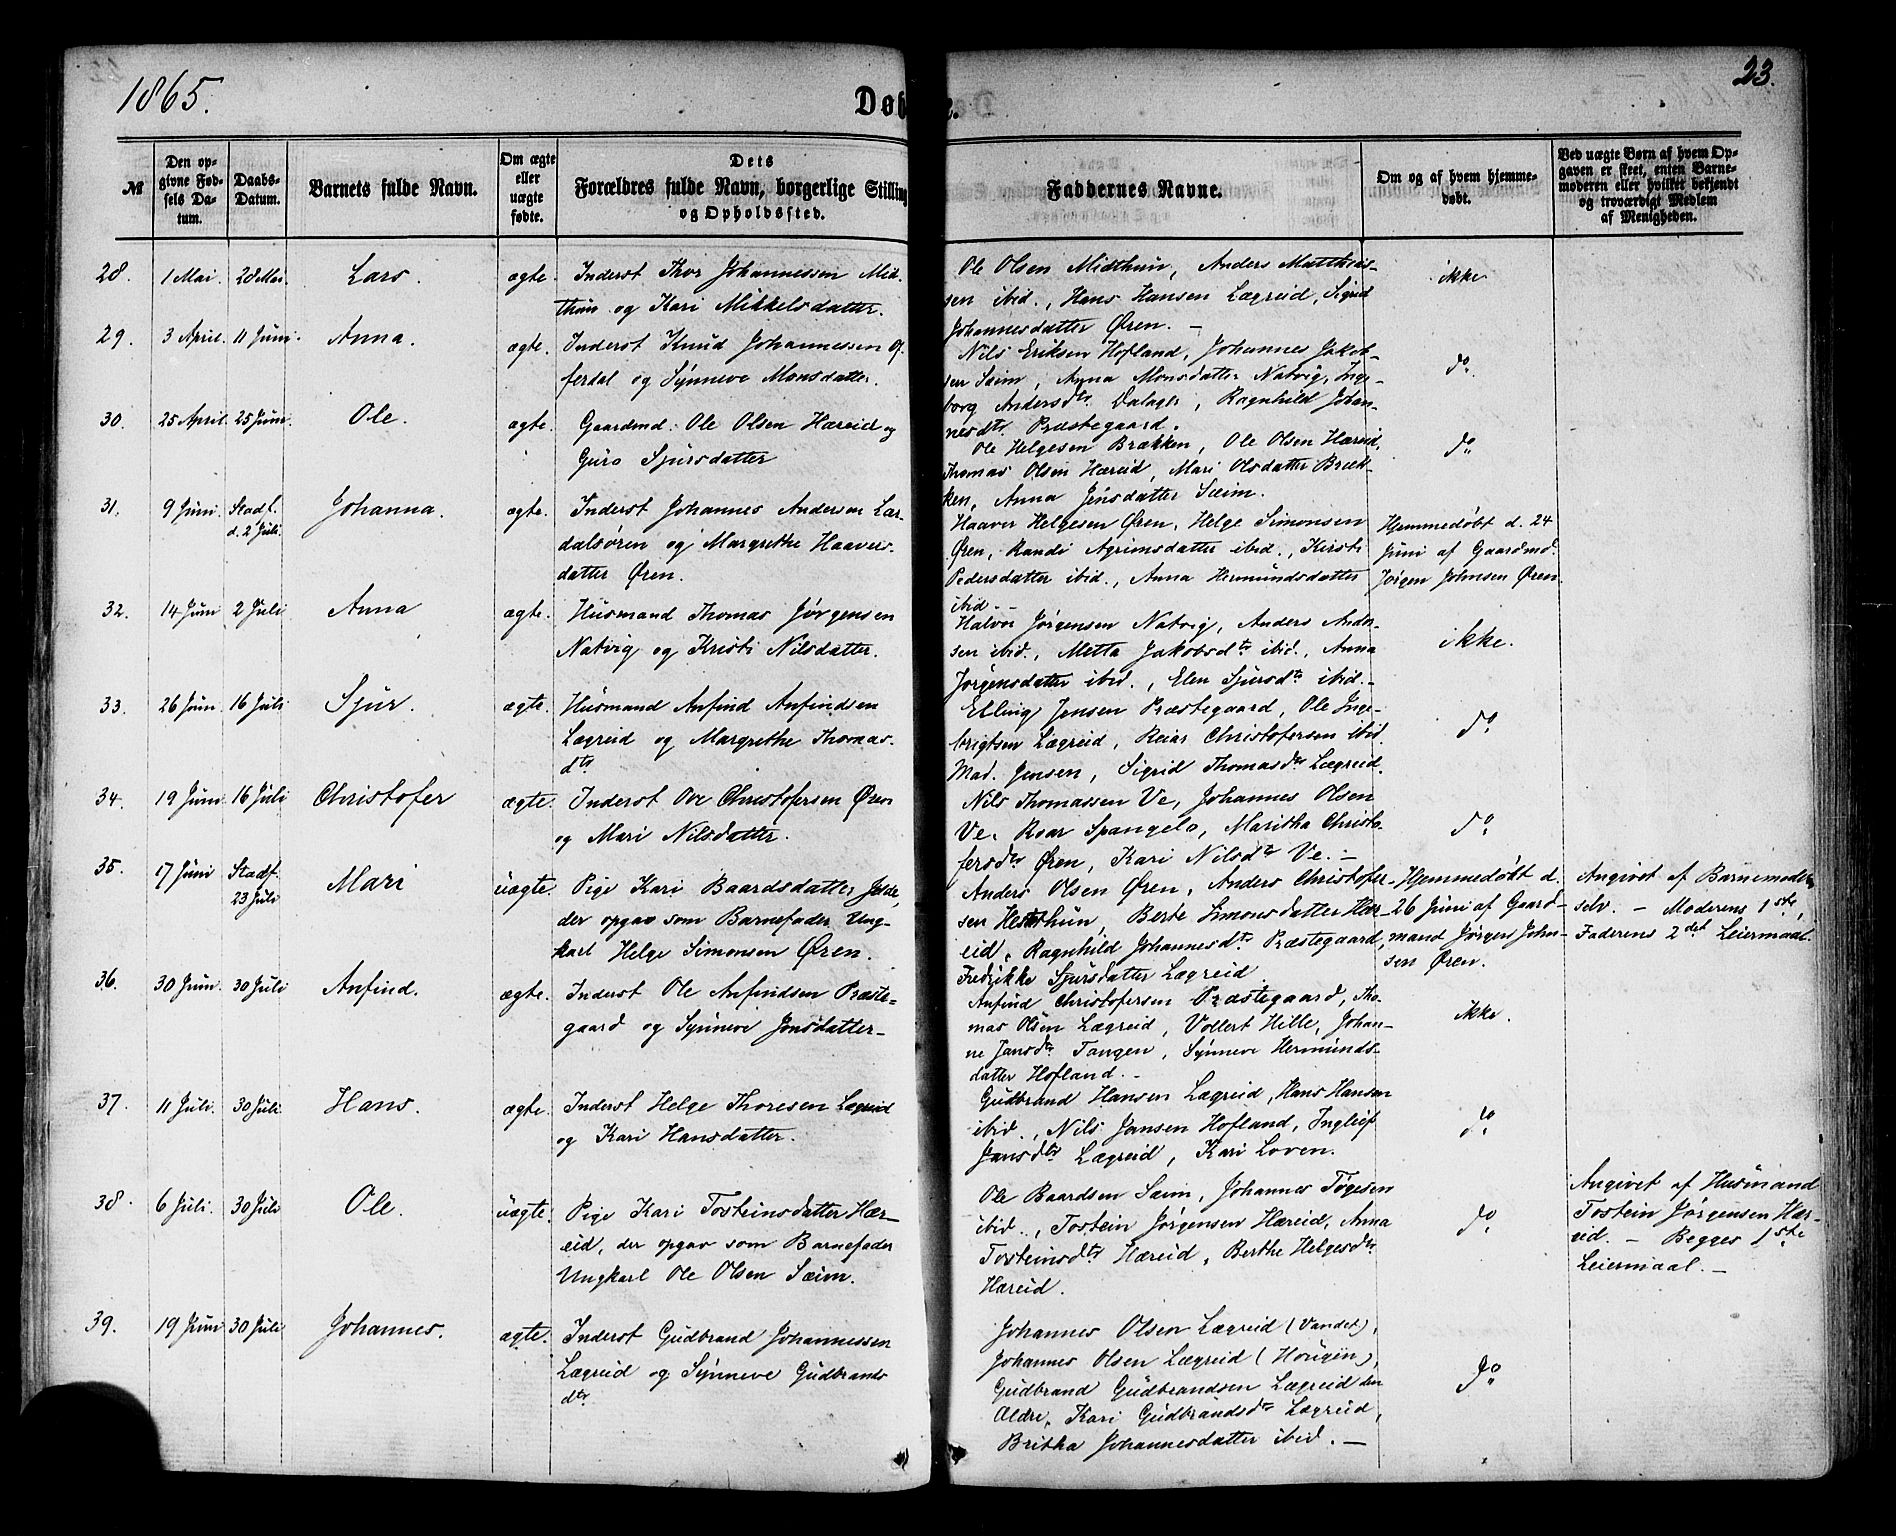 1865.
Døb
e.
23.
№
Den op-
givne Fød-
sels Da-
tum.
Daabs-
Datum.
Barnets fulde Navn.
Om ægte
eller
uægte
fødte.
Dets
Forældres fulde Navn, borgerlige Stilling
og Opholdssted.
Faddernes Navne.
Om og af hvem hjemme-
døbt.
Ved uægte Børn af hvem Op-
gaven er skeet, enten Barne-
moderen eller hvilket bekjendt
og troværdigt Medlem
af Menigheden.
28. 1 Mai. 28 Mai. Lars. ægte. Inderst Thor Johannessen Mid-
thun og Kari Mikkelsdatter.
Ole Olsen Midthun, Anders Matthias-
sen ibid., Hans Hansen Lægreid, Sigrid
Johannesdatter Øren. —
ikke
29. 3 April. 11 Juni. Anna. ægte. Inderst Knud Johannessen Of-
ferdal og Synneve Monsdatter.
Nils Eriksen Hofland, Johannes Jakob-
sen Sæim, Anna Monsdatter Natvig, Inge-
borg Andersdtr Dalager, Ragnhild Johan-
nesdtr Præstegaard.
do
30. 25 April. 25 Juni. Ole. ægte. Gaardmd. Ole Olsen Hæreid og
Guro Sjursdatter
Ole Helgesen Brækken, Ole Olsen Hæreid,
Thomas Olsen Hæreid, Mari Olsdatter Bræk-
ken, Anna Jensdatter Sæim.
do
31. 9 Juni. Stadf.
d. 2 Juli. Johanna. ægte. Inderst Johannes Andersen Lær-
dalsøren og Margrethe Haavers-
datter Øren.
Haaver Helgesen Øren, Helge Simonsen
Øren, Randi Agrimsdatter ibid., Kirsti
Pedersdatter ibid., Anna Hermundsdatter
ibid. -
Hjemmedøbt d. 24
Juni af Gaardmd.
Jørgen Johnsen Øren.
32. 14 Juni 2 Juli Anna ægte. Husmand Thomas Jørgensen
Natvig og Kristi Nilsdatter.
Halvor Jørgensen Natvig, Anders Ander-
sen ibid., Metta Jakobsdtr ibid., Anna
Jørgensdatter ibid., Elen Sjursdtr ibid. -
ikke.
33. 26 Juni 16 Juli Sjur. ægte. Husmand Anfind Anfindsen
Lægreid og Margrethe Thomas-
dtr
Elling Jensen Præstegaard, Ole Inge-
brigtsen Lægreid, Reiar Christofersen ibid.
Mad. Jensen, Sigrid Thomasdtr Lægreid.
do
34. 19 Juni 16 Juli Christofer ægte. Inderst Ove Christofersen Øren
og Mari Nilsdatter.
Nils Thomassen Ve, Johannes Olsen
Ve, Roar Spangelo, Maritha Christo-
fersdtr Øren, Kari Nilsdtr Ve. —
do
35. 17 Juni Stadf.
23 Juli Mari uægte. Pige Kari Baardsdatter Jelde,
der opgav som Barnefader Ung-
karl Helge Simonsen Øren.
Anders Olsen Øren, Anders Christofer-
sen Hestethun, Berte Simonsdatter Hær-
eid, Ragnhild Johannesdtr Præstegaard,
Fredrikke Sjursdatter Lægreid.
Hjemmedøbt d.
26 Juni af Gaard-
mand Jørgen John-
sen Øren.
Angivet af Barnemoderen
selv. — Moderens 1ste,
Faderens 2det Leiermaal.
36. 30 Juni. 30 Juli Anfind. ægte. Inderst Ole Anfindsen Præste-
gaard og Synneve Jonsdatter-
Anfind Christofersen Præstegaard, Tho-
mas Olsen Lægreid, Vollert Hille, Johan-
ne Jansdtr Tangen, Synneve Hermunds-
datter Hofland. -
ikke.
37. 11 Juli. 30 Juli. Hans. ægte. Inderst Helge Thoresen Lægreid
og Kari Hansdatter.
Gudbrand Hansen Lægreid, Hans Hansen
ibid., Nils Jansen Hofland, Inglef
Jansdtr Lægreid, Kari Loven.
do
38. 6 Juli. 30 Juli Ole. uægte. Pige Kari Tosteinsdatter Hær-
eid, der opgav som Barnefader
Ungkarl Ole Olsen Sæim.
Ole Baardsen Sæim, Johannes Tøgesen
ibid., Tostein Jørgensen Hæreid, Anna
Tosteinsdtr Hæreid, Berthe Helgesdtr
Hæreid.
do
Angivet af Husmand
Tostein Jørgensen Hær-
eid. — Begges 1ste
Leiermaal. —
39. 19 Juni 30 Juli Johannes. ægte. Inderst Gudbrand Johannessen
Lægreid og Synneve Gudbrands
dtr.
Johannes Olsen Lægreid (Vandet),
Johannes Olsen Lægreid (Hougen),
Gudbrand Gudbrandsen Lægreid den
Ældre, Kari Gudbrandsdtr Lægreid,
Britha Johannesdatter ibid. —
do